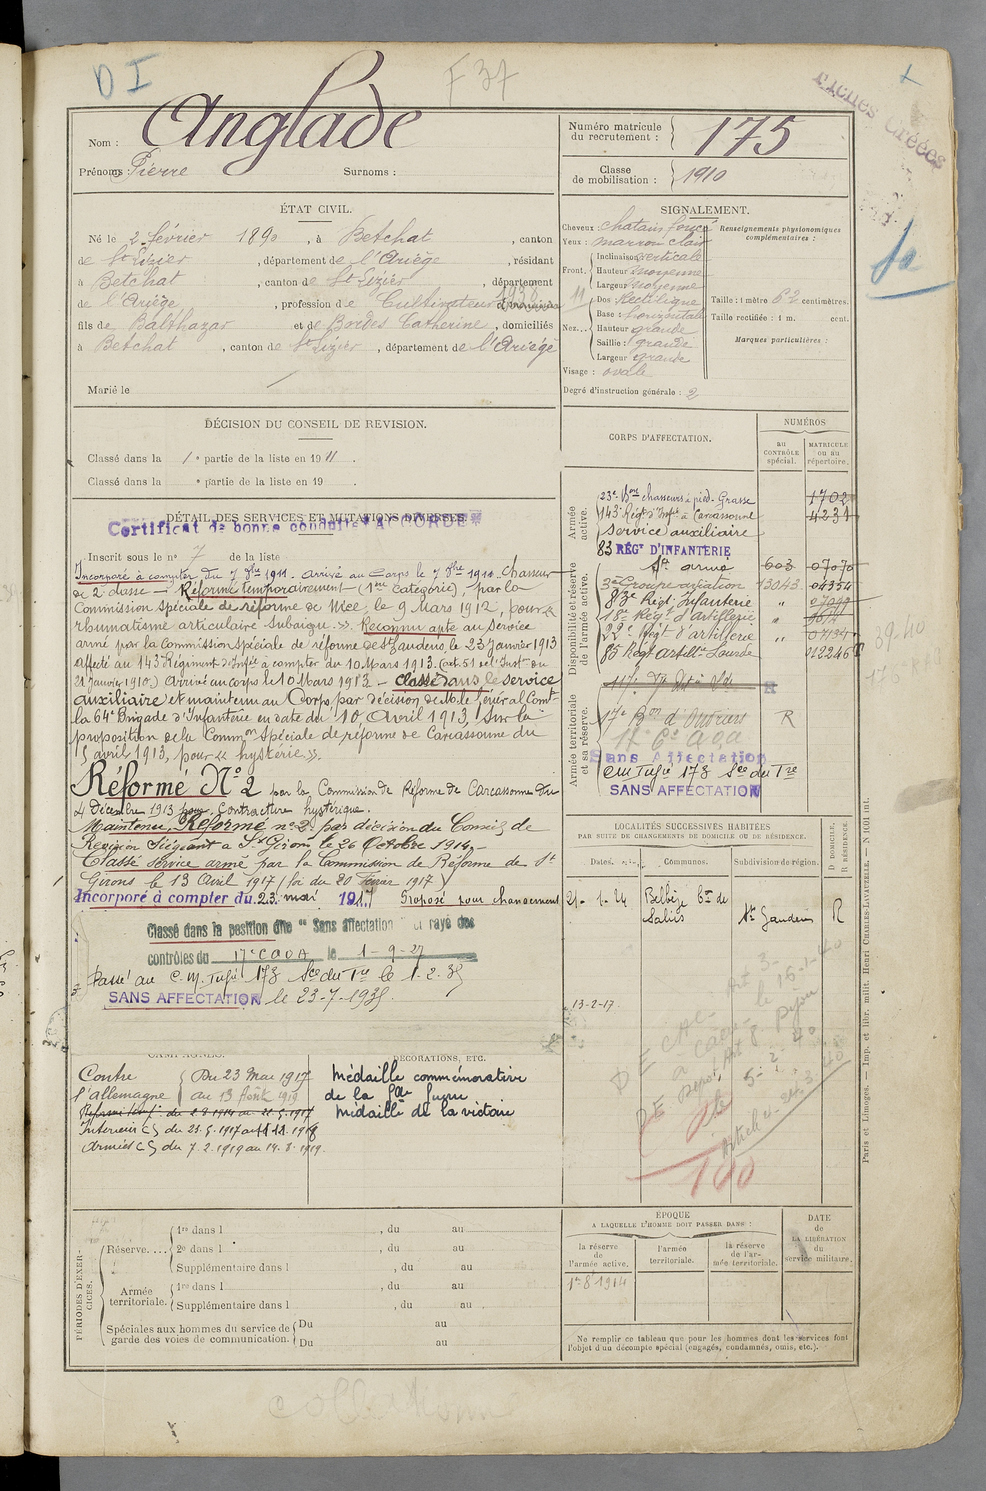 D I
F 37
Fiches Créées
Nom : Anglade
Prénoms Pierre Surnoms :
Numéro matricule
du recrutement : 175
Classe
de mobilisation : 1910
ÉTAT CIVIL.
Né le 2 février 1890, à Betchat, canton
de St Lizier, département de l'Ariège, résidant
à Betchat, canton de St Lizier, département
de l'Ariège, profession de Cultivateur
fils de Balthazar et de Bordes Catherine, domiciliés
à Betchat, canton de St Lizier, département de l'Ariège
Marié le
SIGNALEMENT.
Cheveux : chatain foncé
Yeux : marron clair
Front. Inclinaison verticale
Hauteur moyenne
Largeur moyenne
Nez... Dos Rectiligne
Base : horizontale
Hauteur grande
Saillie : grande
Largeur grande
Visage : ovale
Degré d'instruction générale : 2
Renseignements physionomiques
complémentaires :
Taille : 1 mètre 62 centimètres.
Taille rectifiée : 1 m. cent.
Marques particulières :
DÉCISION DU CONSEIL DE REVISION.
Classé dans la 1e partie de la liste en 1911.
Classé dans la e partie de la liste en 19 .
DÉTAIL DES SERVICES ET MUTATIONS DIVERSES.
Certificat de bonne conduite "ACCORDÉ"
Inscrit sous le no 7 de la liste
Incorporé à compter du 7 8bre 1911. arrivé au Corps le 7 8bre 1911. Chasseur
de 2e classe — Réformé temporairement (1ère Catégorie), par la
Commission spéciale de réforme de Nice, le 9 Mars 1912, pour «
rhumatisme articulaire subaigu. ». Reconnu apte au service
armé par la Commission spéciale de réforme de St Gaudens, le 23 Janvier 1913
affecté au 143e Régiment d'Infie à compter du 10 Mars 1913. (art. 51 de l'Inston du
21 Janvier 1910.) Arrivé au corps le 10 Mars 1913 — classé dans le service
auxiliaire et maintenu au Corps, par décision de M. le Général Comt
la 64e Brigade d'Infanterie en date du 10 Avril 1913, sur la
proposition de la Common spéciale de réforme de Carcassonne du
5 avril 1913, pour « hystérie ».
Réformé No 2 par la Commission de Réforme de Carcassonne du
4 Décembre 1913 pour Contracture hystérique.
Maintenu Réformé no 2 par décision du Conseil de
Revision siégeant à St Girons le 26 Octobre 1914. —
Classé service armé par la Commission de Réforme de St
Girons le 13 Avril 1917 (loi du 20 Février 1917)
Incorporé à compter du 23 mai 1917 Proposé pour changement
Classé dans la position dite "Sans affectation" et rayé des
contrôles du 17e C O O A le 1-9-27
Passé au C. M. Infie 173 Sce du Tre le 1-2-35
SANS AFFECTATION le 23-7-1935.
CORPS D'AFFECTATION.
NUMÉROS
au
CONTRÔLE
spécial.
MATRICULE
ou au
répertoire.
Armée
active.
23e Bon chasseurs à pied - Grasse 1702
143e Régt d'Infie à Carcassonne 4231
Service auxiliaire
83 RÉGT D'INFANTERIE
Disponibilité et réserve
de l'armée active.
St armé 603 07070
2e Groupe aviation 13043 04354
83e Régt Infanterie "
18e Régt d'artillerie "
22e Régt d'artillerie "
85 Régt artillie Lourde
Armée territoriale
et sa réserve.
17e Bon d'Ouvriers R
17e C O A
Sans Affectation
CM Infie 173 Sce du Tre
SANS AFFECTATION
LOCALITÉS SUCCESSIVES HABITÉES
PAR SUITE DE CHANGEMENTS DE DOMICILE OU DE RÉSIDENCE.
Dates. Communes. Subdivision de région.
D DOMICILE.
R RÉSIDENCE.
21-1-24 Belbèze Con de
Salies St Gaudens R
13-2-17
100
CAMPAGNES.
Contre
l'allemagne
Du 23 Mai 1917
au 13 Août 1919
Intérieur C S du 23.5.1917 au 11.11.1918
Armées C S du 7.2.1919 au 14.8.1919.
DÉCORATIONS, ETC.
Médaille commémorative
de la Gde Guerre
Médaille de la victoire
PÉRIODES D'EXERCICES.
Réserve.... 1re dans l , du au
2e dans l , du au
Supplémentaire dans l , du au
Armée
territoriale. 1re dans l , du au
Supplémentaire dans l , du au
Spéciales aux hommes du service de
garde des voies de communication. Du au
Du au
ÉPOQUE
A LAQUELLE L'HOMME DOIT PASSER DANS :
la réserve
de
l'armée active.
l'armée
territoriale.
la réserve
de l'armée
territoriale.
DATE
de
LA LIBÉRATION
du
service militaire.
1er 8bre 1914
Ne remplir ce tableau que pour les hommes dont les services font
l'objet d'un décompte spécial (engagés, condamnés, omis, etc.).
Paris et Limoges. — Imp. et libr. milit. Henri CHARLES-LAVAUZELLE. — N 1001 int.